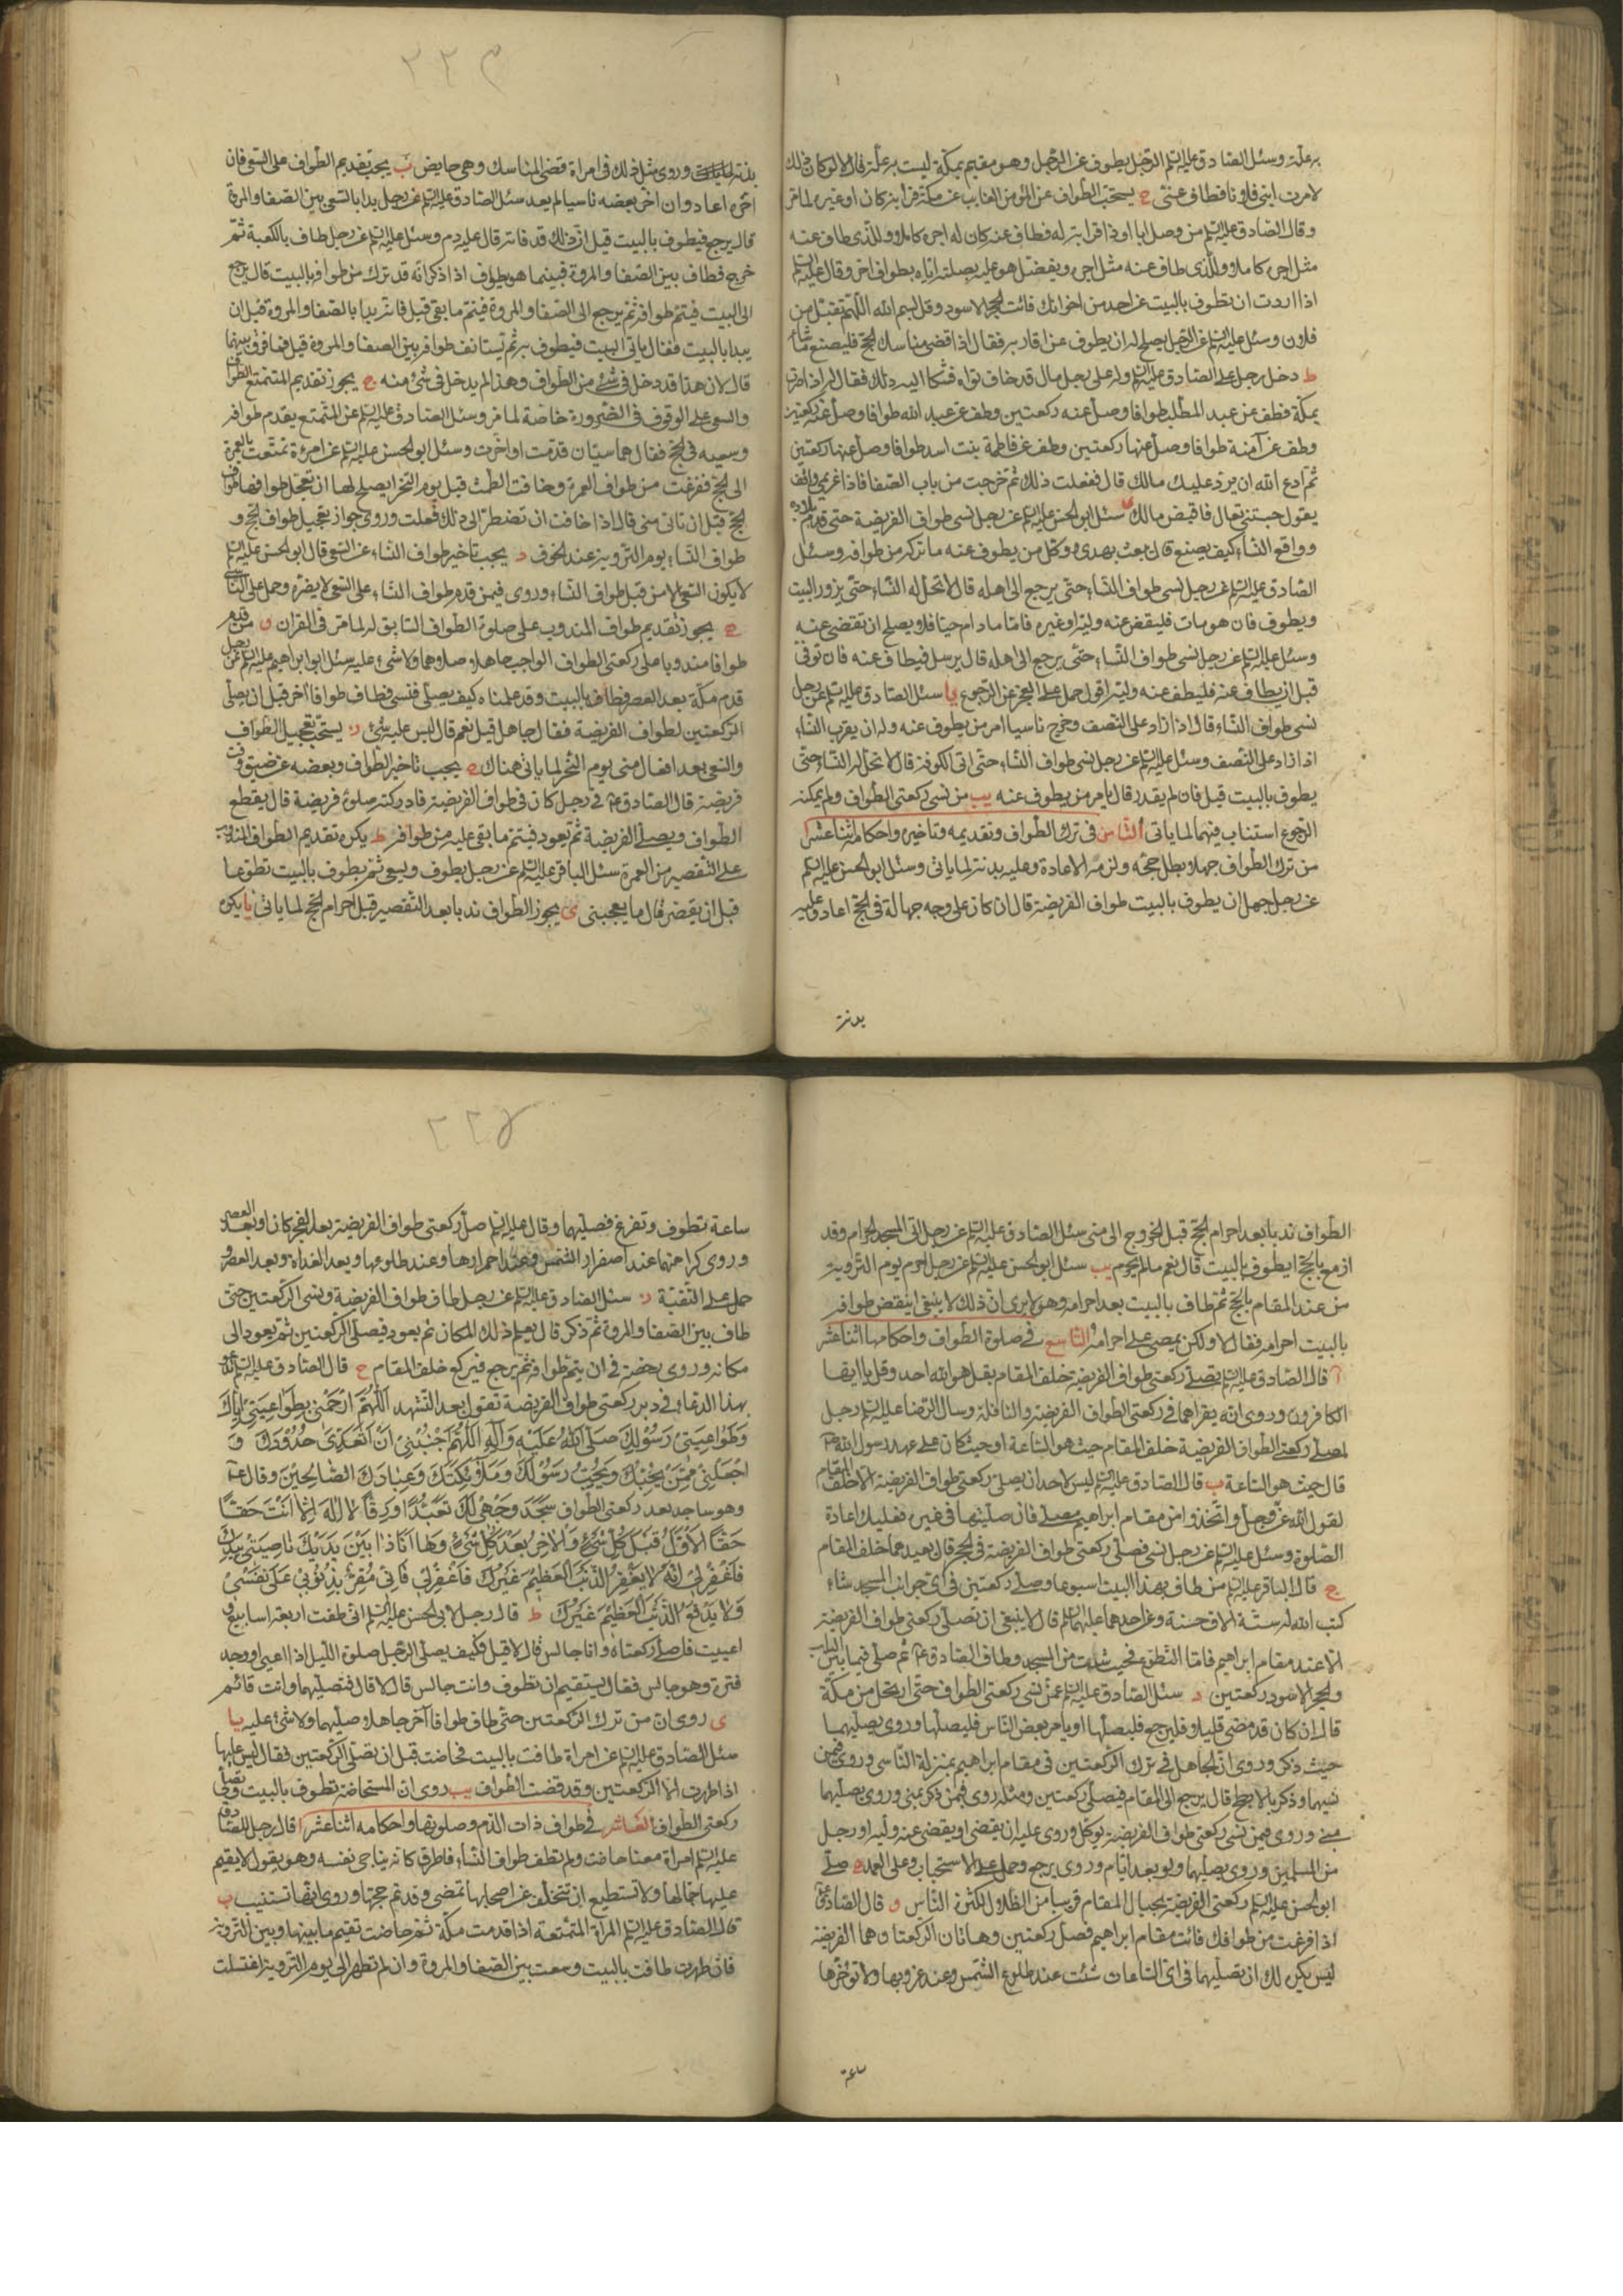 به علة وسئل الصادق عليه السلم الرجل يطوف عن الرجل وهو مقيم بمكة ليست به علة قال لا لو كان ذلك
لامرت ابنى فلانا فطاف عنى ح يستحب الطواف عن المؤمن الغايب عن مكة قرابة كان او غيره لما مر
وقال الصادق عليه السلم من وصل ابا او ذا قرابة له فطاف عنه كان له اجره كاملا وللذى طاف عنه
مثل اجره كاملا وللذى طاف عنه مثل اجره ويفضل هو عليه بصلته اياه بطواف اخر وقال عليه السلم
اذا اردت ان تطوف بالبيت عن احد من اخوانك فائت الحجر الاسود وقل بسم الله اللهم تقبل من
فلان وسئل عليه السلم عن الرجل يصلح له ان يطوف عن اقاربه فقال اذا قضى مناسك الحج فليصنع ما شاء
ط دخل رجل على الصادق عليه السلم وله على رجل مال قد خاف تواه فشكا اليه ذلك فقال له اذا صرت
بمكة فطف عن عبد المطلب طوافا وصل عنه ركعتين وطف عن عبد الله طوافا وصل عنه ركعتين
وطف عن آمنة طوافا وصل عنها ركعتين وطف عن فاطمة بنت اسد طوافا وصل عنها ركعتين
ثم ادع الله ان يرد عليك مالك قال ففعلت ذلك ثم خرجت من باب الصفا فاذا غريمى واقف
يقول حبستنى تعال فاقبض مالك ى سئل ابو الحسن عليه السلم عن رجل نسى طواف الفريضة حتى قدم بلاده
وواقع النساء كيف يصنع قال يبعث بهدى ووكل من يطوف عنه ما تركه من طوافه وسئل
الصادق عليه السلم عن رجل نسى طواف النساء حتى يرجع الى اهله قال لا تحل له النساء حتى يزور البيت
ويطوف فان هو مات فليقض عنه وليه او غيره فاما ما دام حيا فلا يصلح ان تقضى عنه
وسئل عليه السلم عن رجل نسى طواف النساء حتى يرجع الى اهله قال يرسل فيطاف عنه فان توفى
قبل ان يطاف عنه فليطف عنه وليه اقول حمل على العجز عن الرجوع يا سئل الصادق عليه السلم عن رجل
نسى طواف النساء قال اذا زاد على النصف وخرج ناسيا امر من يطوف عنه وله ان يقرب النساء
اذا زاد على النصف وسئل عليه السلم عن رجل نسى طواف النساء حتى اتى الكوفة قال لا تحل له النساء حتى
يطوف بالبيت قيل فان لم يقدر قال يامر من يطوف عنه يب من نسى ركعتى الطواف ولم يمكنه
الرجوع استناب فيهما لما ياتى الثامن فى ترك الطواف وتقديمه وتاخيره واحكامه اثنا عشر ا
من ترك الطواف جهلا بطل حجه ولزمه الاعادة وعليه بدنة لما ياتى وسئل ابو الحسن عليه السلم
عن رجل جهل ان يطوف بالبيت طواف الفريضة قال ان كان على وجه جهالة فى الحج اعاد وعليه
بدنة
٢٢٣
بدنة وروى مثل ذلك فى امراة قضى المناسك وهى حايض ب يجب تقديم الطواف على السعى فان
اخره اعاد وان اخر بعضه ناسيا لم يعد سئل الصادق عليه السلم عن رجل بدا بالسعى بين الصفا والمروة
قال يرجع فيطوف بالبيت قيل ان ذلك قد فاته قال عليه دم وسئل عليه السلم عن رجل طاف بالكعبة ثم
خرج فطاف بين الصفا والمروة فبينما هو يطوف اذا ذكر انه قد ترك من طوافه بالبيت قال يرجع
الى البيت فيتم طوافه ثم يرجع الى الصفا والمروة فيتم ما بقى قيل فانه بدا بالصفا والمروة قبل ان
يبدا بالبيت فقال ياتى البيت فيطوف به ثم يستانف طوافه بين الصفا والمروة قيل فما فرق بينهما
قال لان هذا قد دخل فى شئ من الطواف وهذا لم يدخل فى شئ منه ج يجوز تقديم المتمتع الطواف
والسعى على الوقوف فى الضرورة خاصة لما مر وسئل الصادق عليه السلم عن المتمتع يقدم طوافه
وسعيه فى الحج فقال هما سيان قدمت او اخرت وسئل ابو الحسن عليه السلم عن امرءة تمتعت بالعمرة
الى الحج ففرغت من طواف العمرة وخافت الطمث قبل يوم النحر ايصلح لها ان تعجل طوافها طواف
الحج قبل ان تاتى منى قال اذا خافت ان تضطر الى ذلك فعلت وروى جواز تعجيل طواف الحج و
طواف النساء يوم التروية عند الخوف د يجب تاخير طواف النساء عن السعى قال ابو الحسن عليه السلم
لا يكون السعى الا من قبل طواف النساء وروى فيمن قدم طواف النساء على السعى لا يضره وحمل على الناسى
ه يجوز تقديم طواف المندوب على صلوة الطواف السابق له لما مر فى القران و من قدم
طوافا مندوبا على ركعتى الطواف الواجب جاهلا صلاهما ولا شئ عليه سئل ابو ابراهيم عليه السلم عن رجل
قدم مكة بعد العصر فطاف بالبيت وقد علمناه كيف يصلى فنسى فطاف طوافا اخر قبل ان يصلى
الركعتين لطواف الفريضة فقال جاهل قيل نعم قال ليس عليه شئ ز يستحب تعجيل الطواف
والسعى بعد افعال منى يوم النحر لما ياتى هناك ح يجب تاخير الطواف وبعضه عن ضيق وقت
فريضة قال الصادق ع فى رجل كان فى طواف الفريضة فادركته صلوة فريضة قال يقطع
الطواف ويصلى الفريضة ثم يعود فيتم ما بقى عليه من طوافه ط يكره تقديم الطواف المندوب
على التقصير من العمرة سئل الباقر عليه السلم عن رجل يطوف ويسعى ثم يطوف بالبيت تطوعا
قبل ان يقصر قال ما يعجبنى ى يجوز الطواف ندبا بعد التقصير قبل احرام الحج لما ياتى يا يكره
الطواف ندبا بعد احرام الحج قبل الخروج الى منى سئل الصادق عليه السلم عن رجل اتى المسجد الحرام وقد
ازمع بالحج ايطوف بالبيت قال نعم ما لم يحرم يب سئل ابو الحسن عليه السلم عن رجل احرم يوم التروية
من عند المقام بالحج ثم طاف بالبيت بعد احرامه وهو لا يرى ان ذلك لا ينبغى اينقض طوافه
بالبيت احرامه فقال لا ولكن يمضى على احرامه التاسع فى صلوة الطواف واحكامها اثنا عشر
ا قال الصادق عليه السلم يصلى ركعتى طواف الفريضة خلف المقام بقل هو الله احد وقل يا ايها
الكافرون وروى انه يقراهما فى ركعتى الطواف الفريضة والنافلة وسال الرضا عليه السلم رجل
اصلى ركعتى الطواف الفريضة خلف المقام حيث هو الساعة او حيث كان على عهد رسول الله ص
قال حيث هو الساعة ب قال الصادق عليه السلم ليس لاحد ان يصلى ركعتى طواف الفريضة الا خلف المقام
لقول الله عز وجل واتخذوا من مقام ابراهيم مصلى فان صليتها فى غيره فعليك اعادة
الصلوة وسئل عليه السلم عن رجل نسى فصلى ركعتى طواف الفريضة فى الحجر قال يعيدهما خلف المقام
ج قال الباقر عليه السلم من طاف بهذا البيت اسبوعا وصلى ركعتين فى اى جوانب المسجد شاء
كتب الله له ستة الاف حسنة وعن احدهما عليهما السلم قال لا ينبغى ان تصلى ركعتى طواف الفريضة
الا عند مقام ابراهيم فاما التطوع فحيث شئت من المسجد وطاف الصادق ع ثم صلى فيما بين الباب
والحجر الاسود ركعتين د سئل الصادق عليه السلم عمن نسى ركعتى الطواف حتى ارتحل من مكة
قال ان كان قد مضى قليلا فليرجع فليصلها او يامر بعض الناس فليصلها وروى يصليهما
حيث ذكر وروى ان الجاهل فى ترك الركعتين فى مقام ابراهيم بمنزلة الناسى وروى فيمن
نسيهما وذكر بالابطح قال يرجع الى المقام فيصلى ركعتين ومثله روى فيمن ذكر بمنى وروى يصليهما
بمنى وروى فيمن نسى ركعتى طواف الفريضة يوكل وروى عليه ان يقضى او يقضى عنه وليه او رجل
من المسلمين وروى يصليهما ولو بعد ايام وروى يرجع وحمل على الاستحباب وعلى العمد ه صلى
ابو الحسن عليه السلم ركعتى الفريضة بحيال المقام قريبا من الظلال لكثرة الناس و قال الصادق ع
اذا فرغت من طوافك فائت مقام ابراهيم فصل ركعتين وهاتان الركعتان هما الفريضة
ليس يكره لك ان تصليهما فى اى الساعات شئت عند طلوع الشمس وعند غروبها ولا تؤخرها
ساعة
٢٢٤
ساعة تطوف وتفرغ فصليهما وقال عليه السلم صل ركعتى طواف الفريضة بعد الفجر كان او بعد العصر
وروى كراهتهما عند اصفرار الشمس وعند احمرارها وعند طلوعها وبعد الغداة وبعد العصر و
حمل على التقية ز سئل الصادق عليه السلم عن رجل طاف طواف الفريضة ونسى الركعتين حتى
طاف بين الصفا والمروة ثم ذكر قال يعلم ذلك المكان ثم يعود فيصلى الركعتين ثم يعود الى
مكانه وروى رخصة فى ان يتم طوافه ثم يرجع فيركع خلف المقام ح قال الصادق عليه السلم تدعو
بهذا الدعاء فى دبر ركعتى طواف الفريضة تقول بعد التشهد اللهم ارحمنى بطواعيتى اياك
وطواعيتى رسولك صلى الله عليه وآله اللهم جنبنى ان اتعدى حدودك و
اجعلنى ممن يحبك ويحب رسولك وملائكتك وعبادك الصالحين وقال ع
وهو ساجد بعد ركعتى الطواف سجد وجهى لك تعبدا ورقا لا اله الا انت حقا
حقا الاول قبل كل شئ والاخر بعد كل شئ وها انا ذا بين يديك ناصيتى بيدك
فاغفر لى انه لا يغفر الذنب العظيم غيرك فاغفر لى فانى مقر بذنوبى على نفسى
ولا يدفع الذنب العظيم غيرك ط قال رجل لابى الحسن عليه السلم انى طفت اربعة اسابيع و
اعييت فاصلى ركعتاه وانا جالس قال لا قيل وكيف يصلى الرجل صلوة الليل اذا اعيى او وجد
فترة وهو جالس فقال يستقيم ان تطوف وانت جالس قال لا قال فتصليهما وانت قائم
ى روى ان من ترك الركعتين حتى طاف طوافا آخر جاهلا صليهما ولا شئ عليه يا
سئل الصادق عليه السلم عن امراة طافت بالبيت فحاضت قبل ان تصلى الركعتين فقال ليس عليها
اذا طهرت الا الركعتين وقد قضت الطواف يب روى ان المستحاضة تطوف بالبيت وتصلى
ركعتى الطواف العاشر فى طواف ذات الدم وصلوتها واحكامه اثنا عشر ا قال رجل للصادق
عليه السلم امراة معنا حاضت ولم تطف طواف النساء فاطرق كانه يناجى نفسه وهو يقول لا يقيم
عليها جمالها ولا تستطيع ان تتخلف عن اصحابها تمضى وقد تم حجها وروى انها تستنيب ب
قال الصادق عليه السلم المراة المتمتعة اذا قدمت مكة ثم حاضت تقيم ما بينها وبين التروية
فان طهرت طافت بالبيت وسعت بين الصفا والمروة وان لم تطهر الى يوم التروية اغتسلت